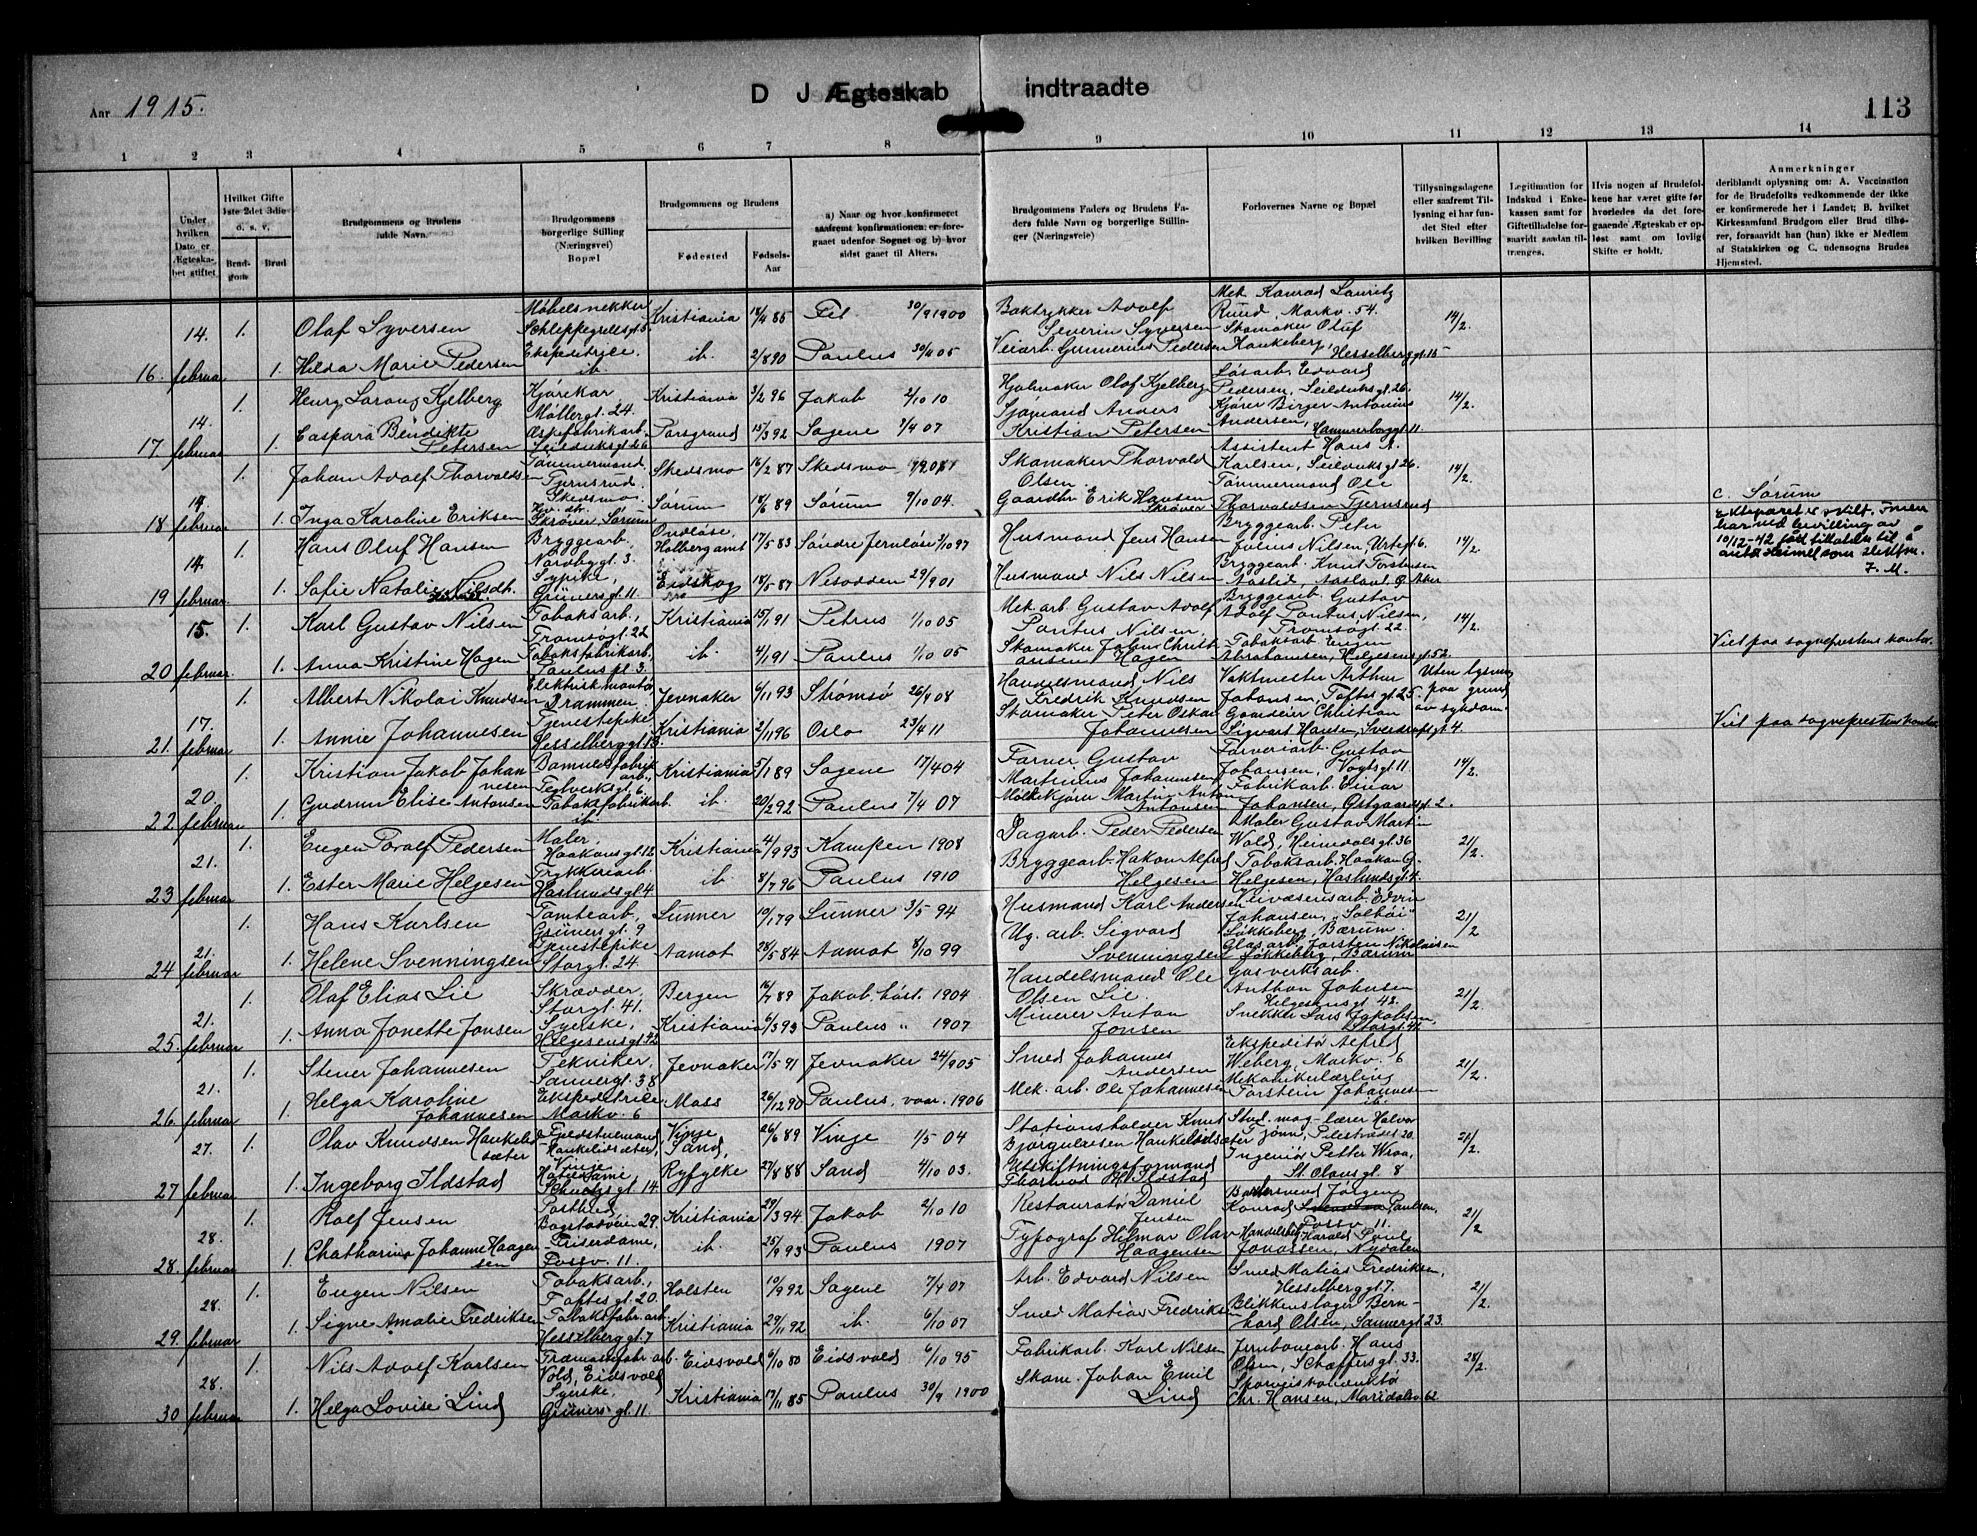 Aar 1915.
D J Ægteskab indtraadte
113
1 2 3 4 5 6 7 8 9 10 11 12 13 14
Under hvilken Dato er Ægteskabet stiftet
Hvilket Gifte 1ste 2det 3die o. s. v.
Brudgom Brud
Brudgommens og Brudens fulde Navn.
Brudgommens borgerlige Stilling (Næringsvei) Bopæl
Brudgommens og Brudens
Fødested
Fødsels-Aar
a) Naar og hvor konfirmeret saafremt konfirmationen er foregaaet udenfor Sognet og b) hvor sidst gaaet til Alters.
Brudgommens Faders og Brudens Faders fulde Navn og borgerlige Stillinger (Næringsveie)
Forlovernes Navne og Bopæl
Tillysningsdagene eller saafremt Tillysning ei har fundet Sted efter hvilken Bevilling
Legitimation for Indskud i Enkekassen samt for Giftetilladelse forsaavidt saadan tiltrænges.
Hvis nogen af Brudefolkene har været gifte før hvorledes da det foregaaende Ægteskab er opløst samt om lovligt Skifte er holdt.
Anmerkninger
deriblandt oplysning om: A. Vaccination for de Brudefolks vedkommende der ikke er konfirmerede her i Landet; B. hvilket Kirkesamfund Brudgom eller Brud tilhører, forsaavidt han (hun) ikke er Medlem af Statskirken og C. udensogns Brudes Hjemsted.
16. 14. februar 1. Olaf Syversen Møbelsnekker Schleppegrellsgt 5 Kristiania 18/4 85 30/9 1900 Boktrykker Adolf Severin Syversen Mek. Konrad Lauritz Ruud, Markv. 54. 14/2.
1. Hilda Marie Pedersen Ekspeditrice, ib. ib. 2/8 90 Paulus Veiarb. Gunnerius Pedersen Skomaker Oluf Haukeberg, Hesselberggt. 15
17. 14. februar 1. Henry Kjelberg Kjørekar Møllergt. 24. Kristiania 3/2 96 Jakob 2/10 10 Olaf Kjelberg Løsarb. Edvard Pedersen, Seilduksgt. 26. 14/2.
1. Caspara Bendikte Petersen Æskefabrikarb. Seilduksgt. 26 Porsgrund 15/3 92 Sagene 7/4 07 Sjømand Anders Kristian Petersen Kjører Birger Antonius Andersen, Hammerborggt. 11.
18. 14. februar 1. Johan Adolf Thorvaldsen Tømmermand, Fjernsrud, Skedsmo. Skedsmo 16/2 87 Skedsmo Skomaker Thorvald Olsen. Assistent Hans A. Karlsen, Seilduksgt. 26. 14/2.
1. Inga Karoline Eriksen Skrøver, Sørum Sørum 18/6 89 Sørum 9/10 04. Gaardbr. Erik Hansen Skrøver Tømmermand Ole Thorvaldsen Fjernsrud C. Sørum
19. 14. februar 1. Hans Oluf Hansen Bryggearb., Nordbygt. 3. Ondløse, Holbergamt 17/5 83 Søndre Jernløse 3/10 97 Husmand Jens Hansen Bryggearb. Peter Julius Nilsen, Urtegt 6. 14/2. Ekteparet er skilt.
10/12-42
F. M.
1. Sofie Natalie Nilsdh. Sypike, Grünersgt. 11. Eidskog 18/5 87 Nesodden 29/9 01 Husmand Nils Nilsen Bryggearb. Knut Torstensen Aaslid, Aaslavt. Ø. Aker
20. 15. februar 1. Karl Gustav Nilsen Tobaksarb., Tromsøgt. 22 Kristiania 15/1 91 Petrus 1/10 05 Mek. arb. Gustav Adolf Pontus Nilsen, Bryggearb. Gustav Adolf Pontus Nilsen, Tromsøgt. 22. 14/2.
1. Anna Kristine Hagen Tobaksfabrikarb. Paulusgt. 3. ib. 4/1 91 Paulus 1/10 05 Skomaker Johns Christiansen Hagen Tobaksarb. Eugen Abrahamsen, Helgesensgt. 52. Viet paa sogneprestens kontor.
21. 17. februar 1. Albert Nikolai Knudsen Elektriskmontør Drammen. Jevnaker 6/11 93 Strømsø 26/4 08 Handelsmand Nils Fredrik Knudsen Vaktmester Arthur Johansen, Toftesgt. 25. Uten lysning paa grund av sykdom.
1. Annie Johannesen Tjenestepike Hesselberggt. 13. Kristiania 2/11 96 Oslo 23/4 11 Skomaker Peter Oskar Johannesen Gaardeier Christian Sigvart Hansen, Sverdrupsgt 4. Viet paa sogneprestens kontor.
22. 20. februar 1. Kristian Jakob Johannesen Teglverksgt. 6. Kristiania 5/1 89 Sagene 17/4 04 Farver Gustav Martinius Johannesen Farveriarb. Gustav Johansen, Vogtsgt. 11. 14/2.
1. Gudrun Elise Antonsen Tobaksfabrikarb. ib. ib. 20/2 92 Paulus 7/4 07 Melkekjører Martin Anton Antonsen Fabrikarb. Einar Johansen, Østgaardsgt. 2.
23. 21. februar 1. Eugen Toralf Pedersen Maler, Haakonsgt. 12 Kristiania 4/9 93 Kampen 1908 Dagarb. Peder Pedersen Maler Gustav Martin Wold, Heimdalsgt. 36 21/2.
1. Ester Marie Helgesen Trykkeriarb. Haslundsgt. 4 ib. 8/7 96 Paulus 1910 Bryggearb. Hakon Alfred Helgesen Tobaksarb. Haakon G. Helgesen, Haslundsgt. 4.
24. 21. februar 1. Hans Karlsen Tomtearb., Grünersgt. 9 Lunner 10/1 79 Lunner 3/5 94 Husmand Karl Andersen Edvin Johansen, "Solhøi" Løkkeberg, Bærum. 21/2
1. Helene Svenningsen Tjenestepike Storgt. 24 Aamot 28/5 84 Aamot 8/10 99 Ug. arb. Sigvard Svenningsen Glasarb. Torsten Nikolaisen Løkkeberg, Bærum
25. 21. februar 1. Olaf Elias Lie Skrædder, Storgt. 41. Bergen 16/7 89 Jakob, høst. 1904 Handelsmand Ole Olsen Lie. Gasverksarb. Anthon Johnsen Helgesensgt 42. 21/2
1. Anna Jonette Jonsen Syerske, Helgesensgt. 42 Kristiania 6/3 93 Paulus " 1907 Minerer Anton Jonsen Snekker Lars Jakobsen, Storgt. 41.
26. 21. februar 1. Stener Johannesen Tekniker, Sannergt. 38 Jevnaker 17/5 91 Jevnaker 24/9 05 Smed Johannes Andersen Ekspeditør Alfred Weberg, Markv. 6 21/2.
1. Helga Karoline Johannesen Ekspeditrice Markv. 6 Moss 26/12 90 Paulus, vaar. 1906 Mek. arb. Ole Johannesen Mekanikerlærling Torstein Johannesen ib.
27 27. februar 1. Olav Knudsen Haukelidsæter Fjeldstuemand Haukelidsæter, Vinje Vinje 26/6 89 Vinje 1/5 04 Stationsholder Knut Bjørgulvsen Haukelidsæter Stud. mag. lærer Halvor Jønn, Pilestrædet 20. 21/2.
1. Ingeborg Ilstad Schultzgt. 14 Sand, Ryfylke 27/8 88 Sand 4/10 03. Utskiftningsformand Thormod H. Ilstad Ingeniør Petter Wraa, St. Olavsgt. 8
28. 28. februar 1. Rolf Jensen Postbud Bogstadveien 29. Kristiania 29/3 94 Jakob 2/10 10 Restauratør Daniel Jensen Jørgen Konrad Paulsen, Fossv. 11. 21/2
1. Chatharina Johanne Haagensen Friserdame, Fossv. 11. ib. 25/9 93 Paulus 1907 Typograf Helmar Olav Haagensen Handelsbet. Harald Paul Jonassen, Nydalen
29. 28. februar 1. Eugen Nilsen Tobaksarb., Toftesgt. 20. Holsten 10/9 92 Sagene 7/4 07 Arb. Edvard Nilsen Smed Matias Fredriksen, Hesselberggt 7. 21/2.
1. Signe Amalie Fredriksen Tobaksfabr. arb. Hesselberggt. 7 Kristiania 29/11 92 ib. 6/10 07 Smed Matias Fredriksen Blikkenslager Bernhard Olsen, Sannergt 23.
30 28. februar 1. Nils Adolf Karlsen Træmassefabr. arb. Vold, Eidsvold Eidsvold 6/10 80 Eidsvold 6/10 95 Fabrikarb. Karl Nilsen Jernbanearb. Hans Olsen, Schæffersgt. 33. 28/2.
1. Helga Lovise Lind Syerske, Grünersgt. 11. Kristiania 17/11 85 Paulus 30/9 1900 Skom. Johan Emil Lind Sporveiskonduktør Chr. Hansen, Maridalsv. 62.